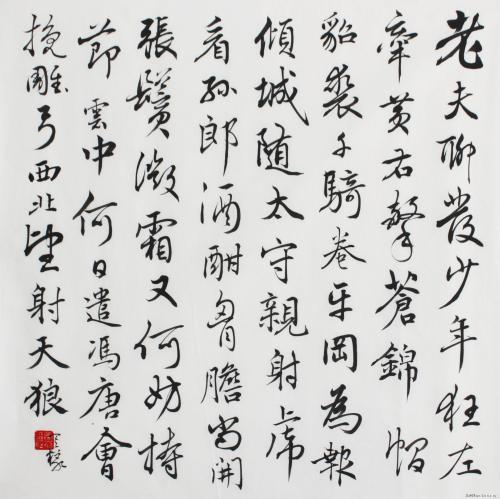 老夫聊發少年狂左
牽黃右擎蒼錦帽
貂裘千騎卷平岡為報
傾城隨太守親射虎
看孫郎酒酣胷膽尚開
張鬢微霜又何妨持
節雲中何日遣馮唐會
挽雕弓西北望射天狼